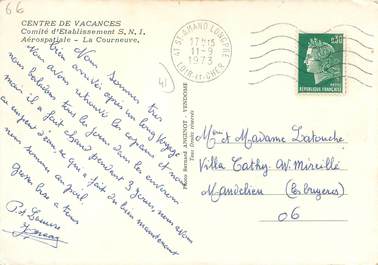 66
CENTRE DE VACANCES
Comité d'Etablissement S.N.I.
Aérospatiale - La Courneuve.
Nous sommes très
bien arrivés après un long voyage
Nous avons retrouvé les copains et nous
nous baladons tous les jours dans les environs
mais il a fait chaud pendant 3 jours, nous avons
eu un peu d'eau ce qui a fait du bien maintenant
nous sommes au poil.
Grosses bises à tous
41
41 ST AMAND LONGPRE
17H15
11-9
1973
LOIR-ET-CHER
0,30
REPUBLIQUE FRANÇAISE
Photo Bernard ANGENOT - VENDOME
Tous Droits réservés
Mme et Madame Latouche
Villa Cathy-Av. Mireille
Mandelieu (les bruyeres)
06